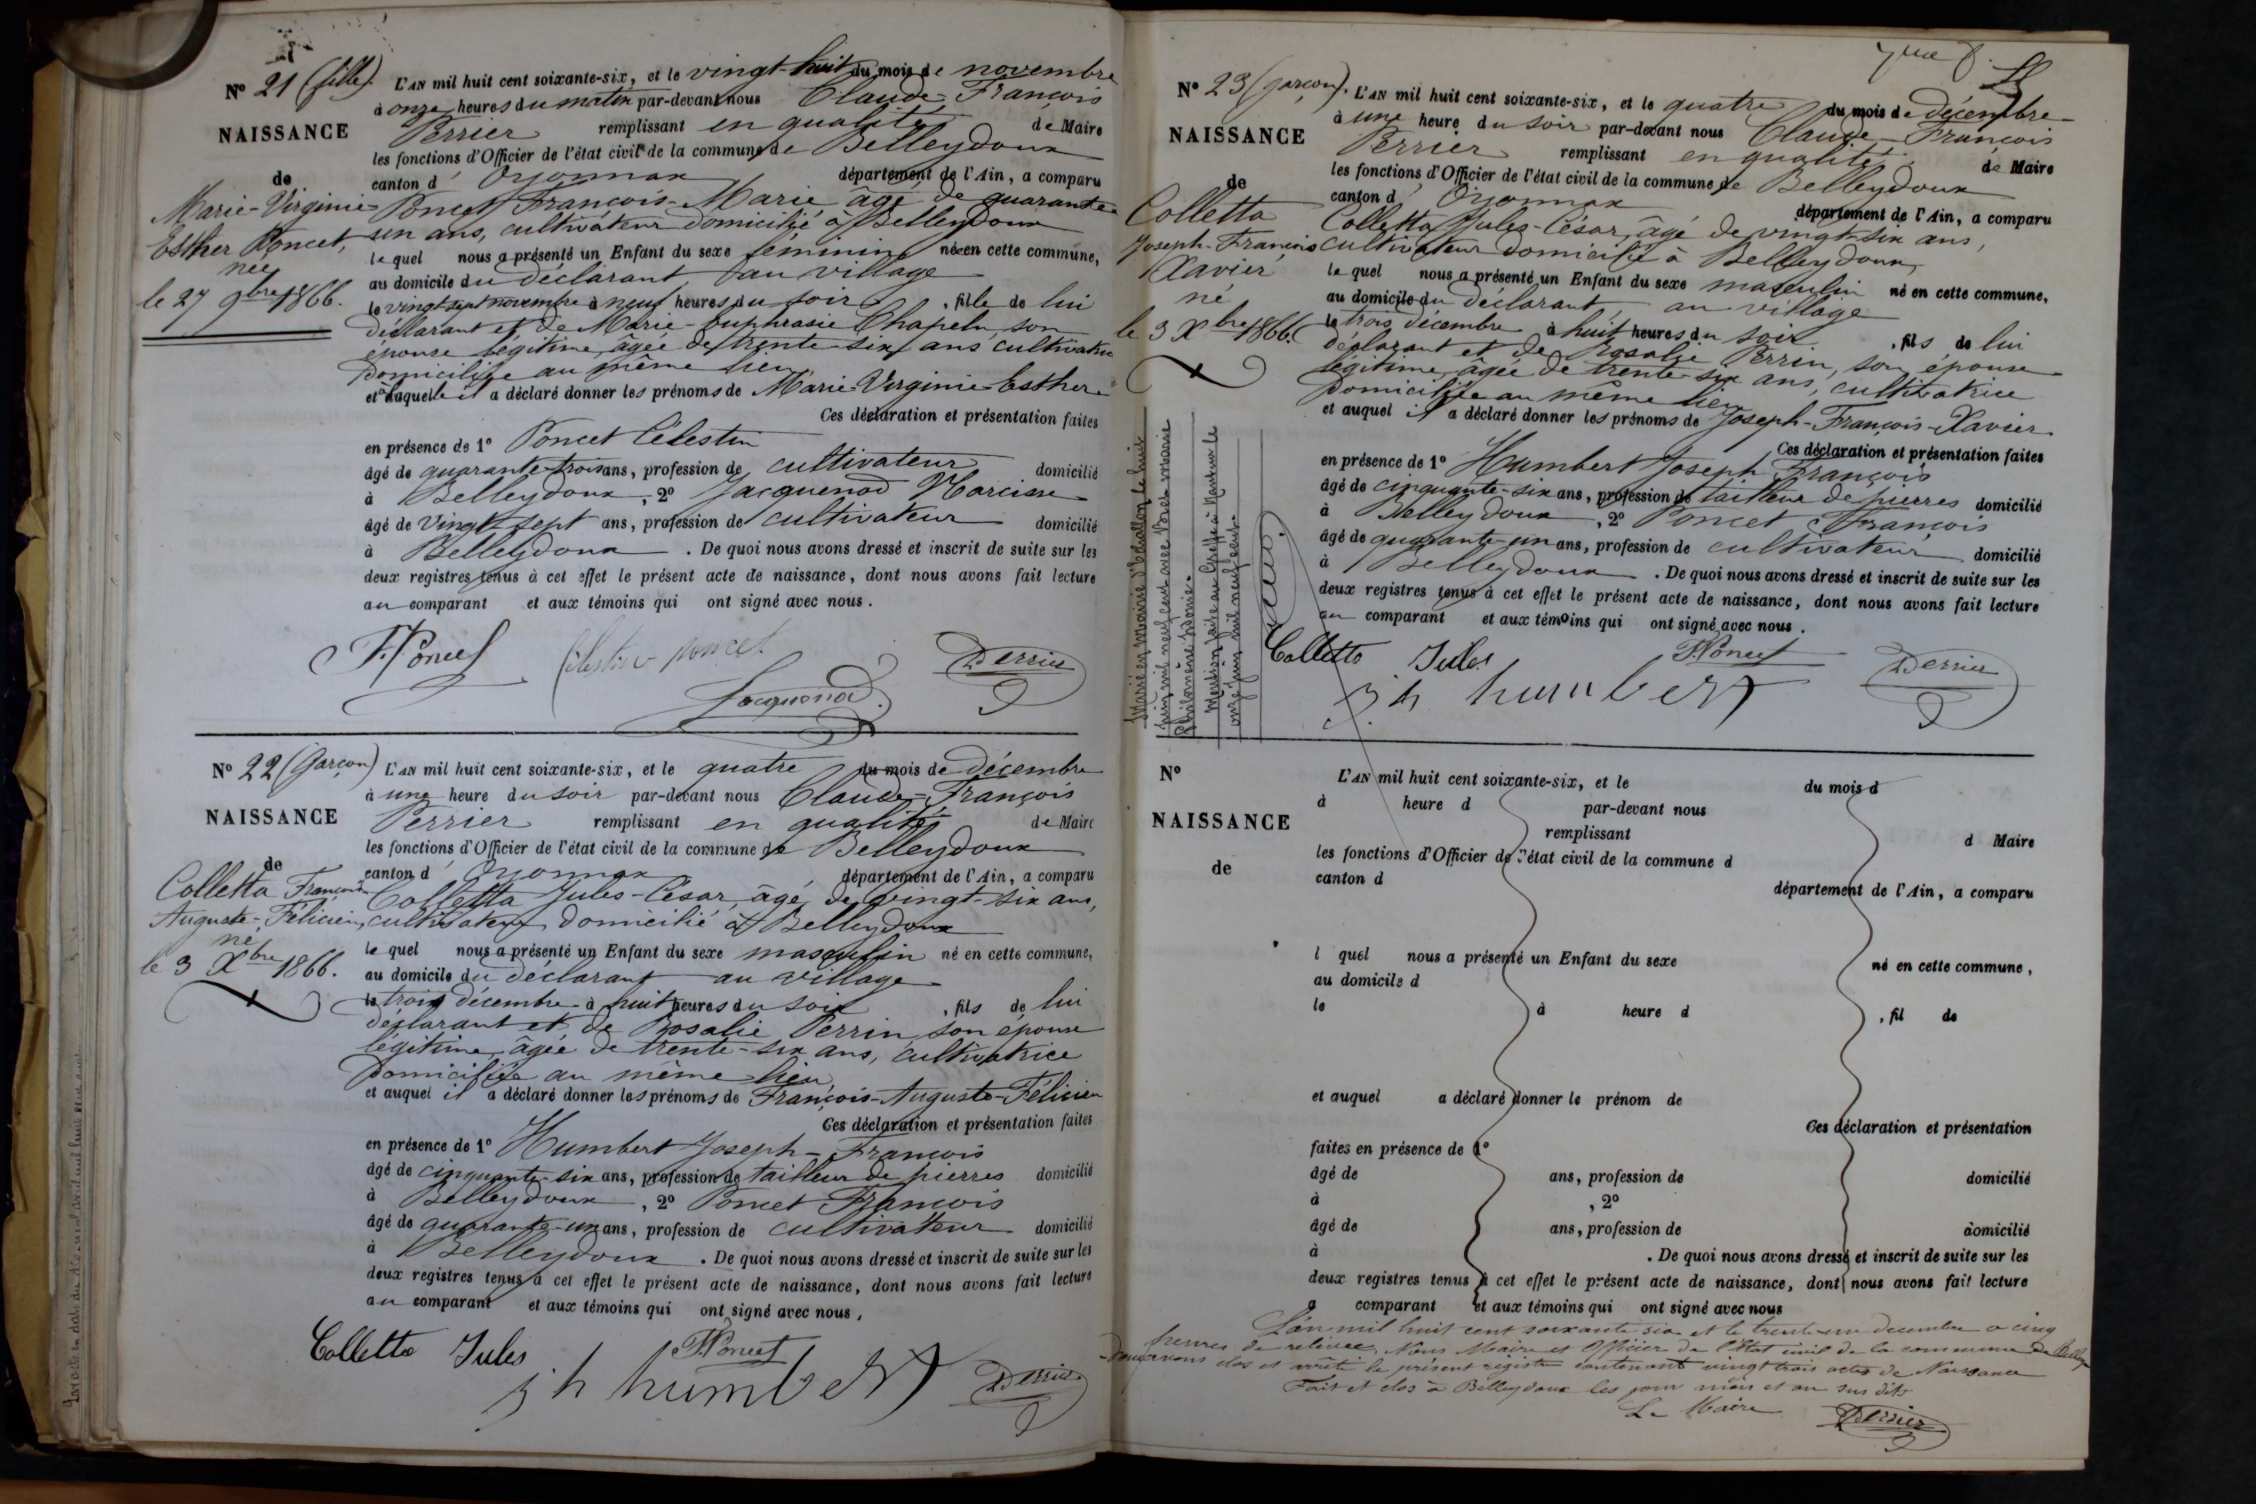 N° 21 (fille).
NAISSANCE
de
Marie-Virginie-
Esther Poncet,
née
le 27 9bre 1866.
L'AN mil huit cent soixante-six, et le vingt-huit du mois de novembre
à onze heures du matin par-devant nous Claude-François
Perrier remplissant en qualité de Maire
les fonctions d'Officier de l'état civil de la commune de Belleydoux
canton d' Oyonnax département de l'Ain, a comparu
Poncet François-Marie âgé de quarante-
un ans, cultivateur domicilié à Belleydoux
le quel nous a présenté un Enfant du sexe féminin née en cette commune,
au domicile du déclarant au village
le vingt-sept novembre à neuf heures du soir, fille de lui
déclarant et de Marie-Euphrasie Chapelu, son
épouse légitime, âgée de trente-six ans cultivatrice
domiciliée au même lieu
et à laquelle il a déclaré donner les prénoms de Marie-Virginie-Esther
Ces déclaration et présentation faites
en présence de 1° Poncet Célestin
âgé de quarante-trois ans, profession de cultivateur domicilié
à Belleydoux, 2° Jacquenod Narcisse
âgé de vingt-sept ans, profession de cultivateur domicilié
à Belleydoux. De quoi nous avons dressé et inscrit de suite sur les
deux registres tenus à cet effet le présent acte de naissance, dont nous avons fait lecture
au comparant et aux témoins qui ont signé avec nous.
F. Poncet Célestin poncet Perrier
Jacquenod
N° 22 (Garçon)
NAISSANCE
de
Colletta François-
Auguste-Félicien,
né
le 3 Xbre 1866.
L'AN mil huit cent soixante-six, et le quatre du mois de décembre
à une heure du soir par-devant nous Claude-François
Perrier remplissant en qualité de Maire
les fonctions d'Officier de l'état civil de la commune de Belleydoux
canton d' Oyonnax département de l'Ain, a comparu
Colletta Jules-César, âgé de vingt-six ans,
cultivateur domicilié à Belleydoux
le quel nous a présenté un Enfant du sexe masculin né en cette commune,
au domicile du déclarant au village
le trois décembre à huit heures du soir, fils de lui
déclarant et de Rosalie Perrin, son épouse
légitime, âgée de trente-six ans, cultivatrice
domiciliée au même lieu,
et auquel il a déclaré donner les prénoms de François-Auguste-Félicien
Ces déclaration et présentation faites
en présence de 1° Humbert Joseph-François
âgé de cinquante-six ans, profession de tailleur de pierres domicilié
à Belleydoux, 2° Poncet François
âgé de quarante-un ans, profession de cultivateur domicilié
à Belleydoux. De quoi nous avons dressé et inscrit de suite sur les
deux registres tenus à cet effet le présent acte de naissance, dont nous avons fait lecture
au comparant et aux témoins qui ont signé avec nous,
Colletta Jules F. Poncet
j h humbert Perrier
N° 23 (garçon).
NAISSANCE
de
Colletta
Joseph-François
Xavier
né
le 3 Xbre 1866.
Marié en Mairie d'Echallon le huit
juin mil neuf cent avec Poncet Marie
Philomène
Mention faite au Greffe à Nantua le
onze juin mil neuf cent
L'AN mil huit cent soixante-six, et le quatre du mois de décembre
à une heure du soir par-devant nous Claude-François
Perrier remplissant en qualité de Maire
les fonctions d'Officier de l'état civil de la commune de Belleydoux
canton d' Oyonnax département de l'Ain, a comparu
Colletta Jules-César, âgé de vingt-six ans,
cultivateur domicilié à Belleydoux,
le quel nous a présenté un Enfant du sexe masculin né en cette commune,
au domicile du déclarant au village
le trois décembre à huit heures du soir, fils de lui
déclarant et de Rosalie Perrin, son épouse
légitime, âgée de trente-six ans, cultivatrice
domiciliée au même lieu
et auquel il a déclaré donner les prénoms de Joseph-François-Xavier
Ces déclaration et présentation faites
en présence de 1° Humbert Joseph François
âgé de cinquante-six ans, profession de tailleur de pierres domicilié
à Belleydoux, 2° Poncet François
âgé de quarante-un ans, profession de cultivateur domicilié
à Belleydoux. De quoi nous avons dressé et inscrit de suite sur les
deux registres tenus à cet effet le présent acte de naissance, dont nous avons fait lecture
au comparant et aux témoins qui ont signé avec nous.
Colletta Jules F. Poncet Perrier
j h humbert
N°
NAISSANCE
de
L'AN mil huit cent soixante-six, et le du mois d
à heure d par-devant nous
remplissant d Maire
les fonctions d'Officier de l'état civil de la commune d
canton d département de l'Ain, a comparu
l quel nous a présenté un Enfant du sexe né en cette commune,
au domicile d
le à heure d , fil de
et auquel a déclaré donner le prénom de
Ces déclaration et présentation
faites en présence de 1°
âgé de ans, profession de domicilié
à , 2°
âgé de ans, profession de domicilié
à . De quoi nous avons dressé et inscrit de suite sur les
deux registres tenus à cet effet le présent acte de naissance, dont nous avons fait lecture
a comparant et aux témoins qui ont signé avec nous
L'an mil huit cent soixante six et le trente-un décembre à cinq
heures de relevée, Nous Maire et Officier de l'Etat civil de la commune de Belley-
doux avons clos et arrêté le présent registre contenant vingt trois actes de Naissance
Fait et clos à Belleydoux les jour mois et an sus dits
Le Maire Perrier